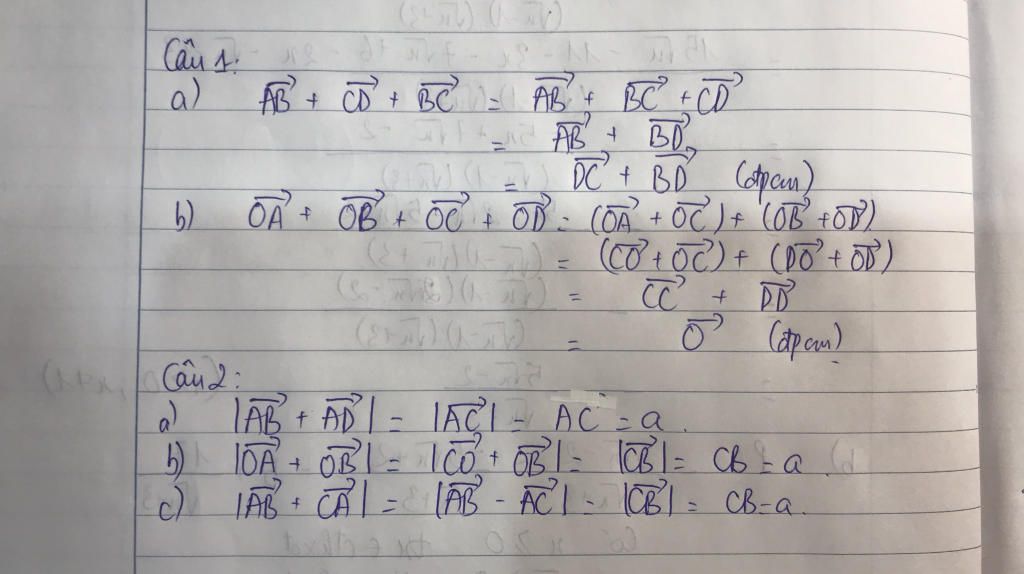 Câu 1:
a) $\overrightarrow{AB} + \overrightarrow{CD} + \overrightarrow{BC} = \overrightarrow{AB} + \overrightarrow{BC} + \overrightarrow{CD}$
$= \overrightarrow{AB} + \overrightarrow{BD}$
$= \overrightarrow{DC} + \overrightarrow{BD}$ (đpcm)
b) $\overrightarrow{OA} + \overrightarrow{OB} + \overrightarrow{OC} + \overrightarrow{OD} = (\overrightarrow{OA} + \overrightarrow{OC}) + (\overrightarrow{OB} + \overrightarrow{OD})$
$= (\overrightarrow{CO} + \overrightarrow{OC}) + (\overrightarrow{DO} + \overrightarrow{OD})$
$= \overrightarrow{CC} + \overrightarrow{DD}$
$= \overrightarrow{O}$ (đpcm)
Câu 2:
a) $|\overrightarrow{AB} + \overrightarrow{AD}| = |\overrightarrow{AC}| = AC = a$.
b) $|\overrightarrow{OA} + \overrightarrow{OB}| = |\overrightarrow{CO} + \overrightarrow{OB}| = |\overrightarrow{CB}| = CB = a$.
c) $|\overrightarrow{AB} + \overrightarrow{CA}| = |\overrightarrow{AB} - \overrightarrow{AC}| = |\overrightarrow{CB}| = CB = a$.